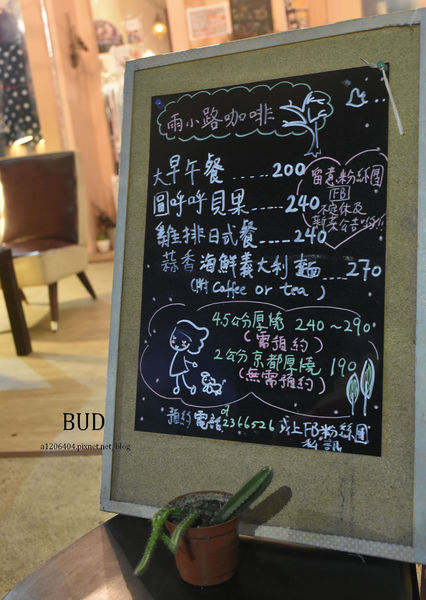 雨小路咖啡
大早午餐......200
圓呼呼貝果......240
雞排日式餐......240
蒜香海鮮義大利麵...270
(附coffee or tea)
留意粉絲團
FB
不定休及
新菜公告呦!!
4.5公分厚燒 240~290
(需預約)
2公分京都厚燒 190
(無需預約)
預約電話 2366526 或上FB粉絲團
私訊
BUD
a1206404.pixnet.net/blog